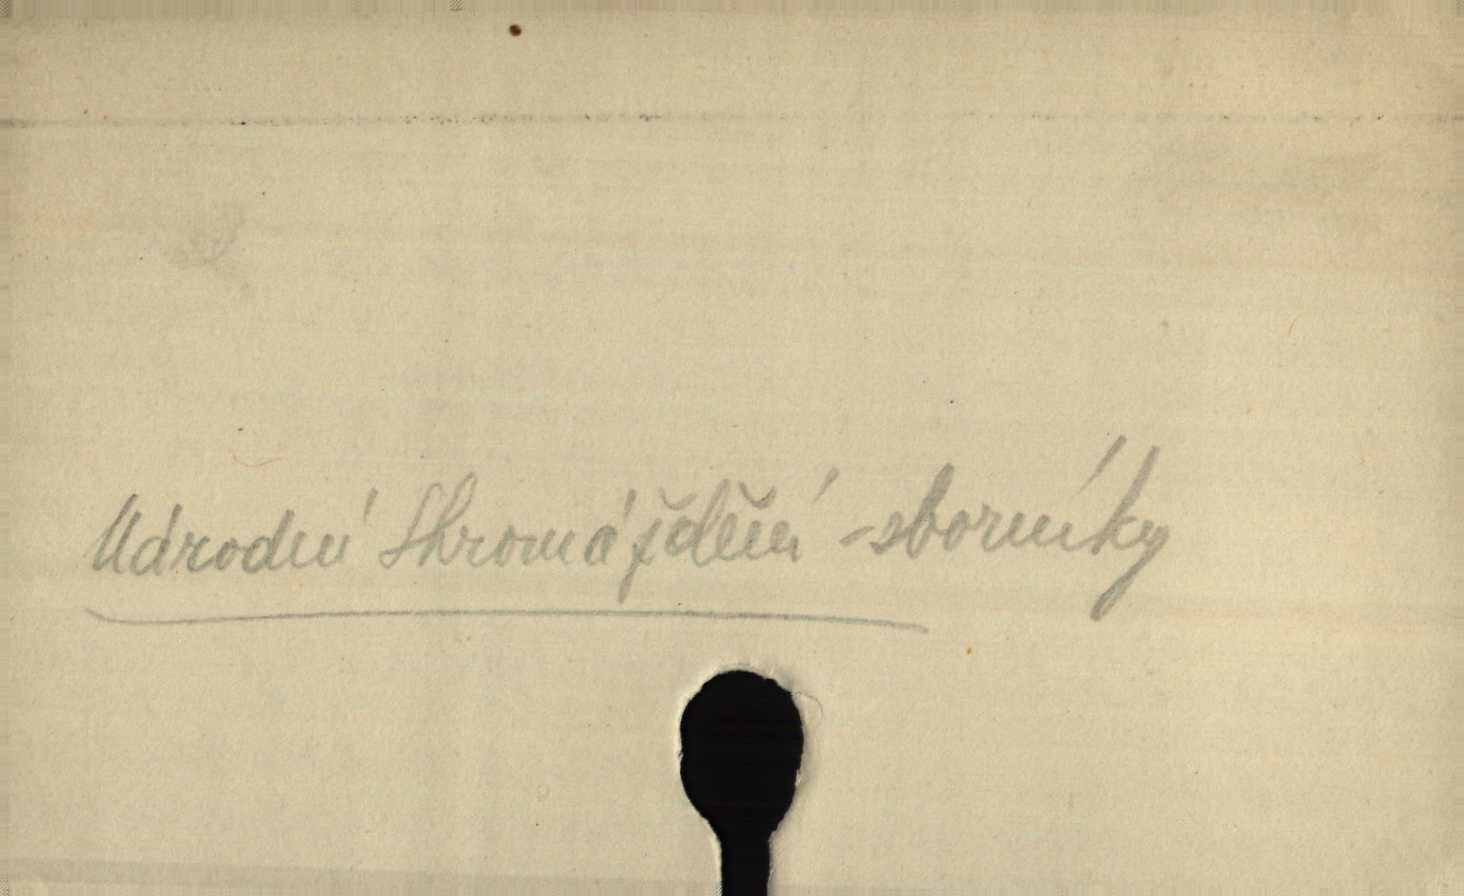 Národní Shromáždění - sborníky